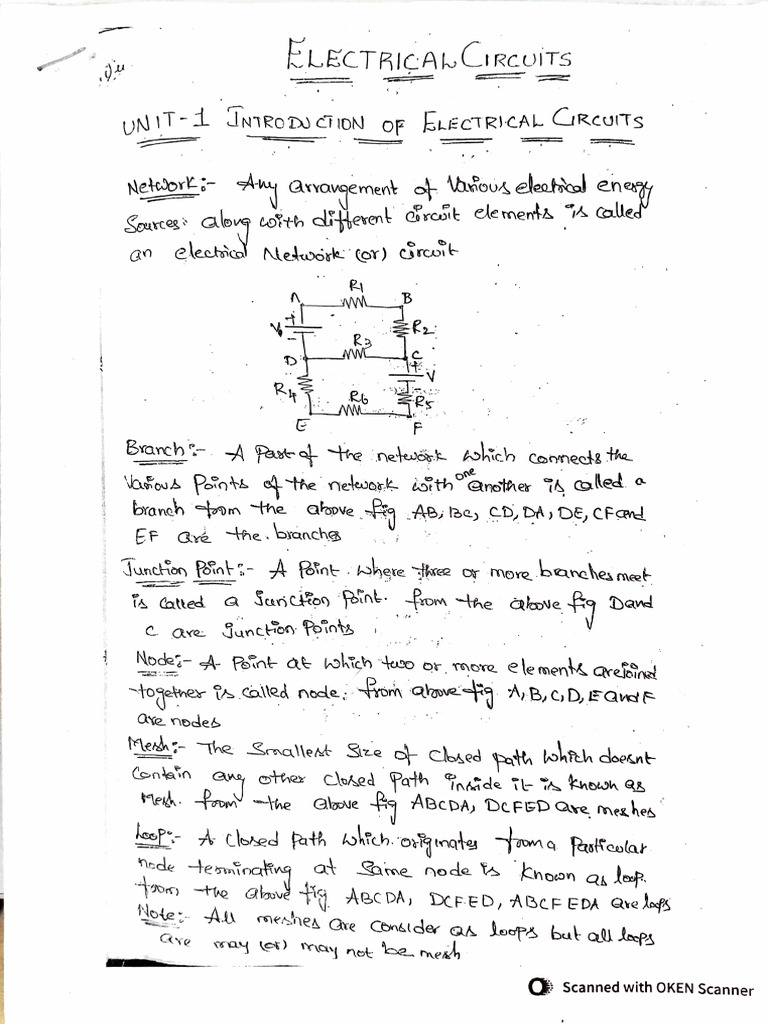 ELECTRICAL CIRCUITS
UNIT-1 INTRODUCTION OF ELECTRICAL CIRCUITS
Network:- Any arrangement of various electrical energy
Sources: along with different circuit elements is called
an electrical Network (or) circuit
R1
A B
V + - R2
R3
D C
R4 + - V
R6 R5
E F
Branch:- A Part of the network which connects the
various points of the network with one another is called a
branch from the above fig AB, BC, CD, DA, DE, CF and
EF are the branches
Junction Point:- A Point where three or more branches meet
is called a Junction Point. from the above fig D and
C are Junction Points
Node:- A Point at which two or more elements are joined
together is called node. from above fig A, B, C, D, E and F
are nodes
Mesh:- The Smallest Size of closed path which doesnt
Contain any other closed Path inside it is known as
Mesh. from the above fig ABCDA, DCFED are meshes
Loop:- A closed Path which originates from a Particular
node terminating at Same node is known as loop.
from the above fig ABCDA, DCFED, ABCFEDA are loops
Note:- All meshes are consider as loops but all loops
are may (or) may not be mesh
Scanned with OKEN Scanner